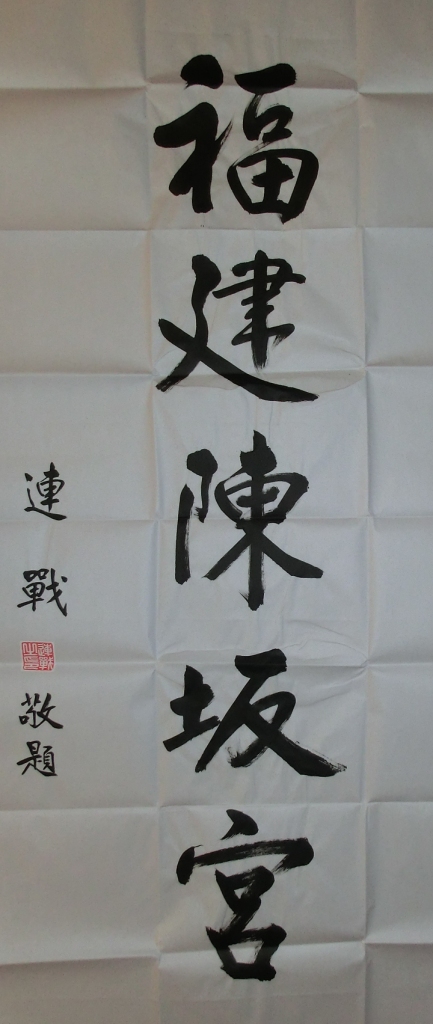 福建陳坂宮
連戰
敬題